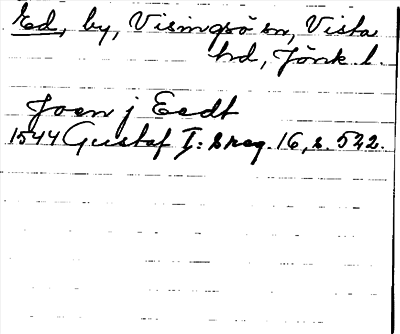 Ed, by, Visingsö sn, Vista
hd, Jönk. l.
Joen j Eedt
1544 Gustaf I: s reg. 16, s. 522.